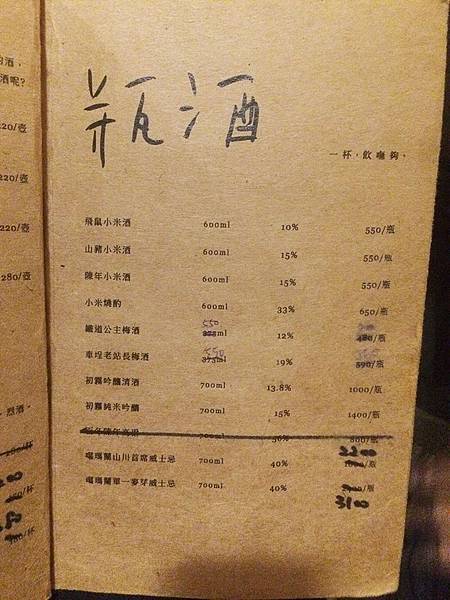 酒，
酒呢?
220/壺
220/壺
220/壺
280/壺
烈酒。
瓶酒
一杯，飲嘸夠。
飛鼠小米酒 600ml 10% 550/瓶
山豬小米酒 600ml 15% 550/瓶
陳年小米酒 600ml 15% 550/瓶
小米燒酌 600ml 33% 650/瓶
鐵道公主梅酒 550 375ml 12% 480/瓶
車埕老站長梅酒 550 375ml 19% 590/瓶
初霧吟釀清酒 700ml 13.8% 1000/瓶
初霧純米吟釀 700ml 15% 1400/瓶
700ml 800/瓶
噶瑪蘭山川首席威士忌 700ml 40% /瓶
噶瑪蘭單一麥芽威士忌 700ml 40% /瓶